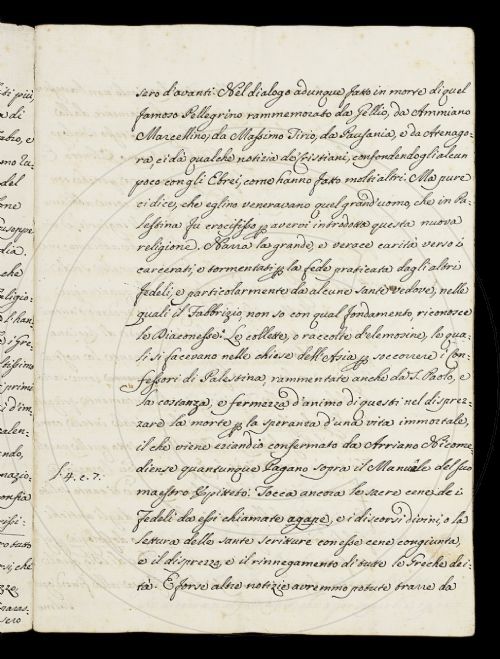 sero d'avanti. Nel dialogo adunque fatto in morte di quel
famoso Pellegrino rammemorato da Gellio, da Ammiano
Marcellino, da Massimo Tirio, da Pausania, e da Atenago-
ra, ci dà qualche notizia de' Cristiani, confondendogli alcun
poco con gli Ebrei, come hanno fatto molti altri. Ma pure
ci dice, che eglino veneravano quel grand'uomo, che in Pa-
lestina fu crocifisso p avervi introdotta questa nuova
religione. Narra la grande, e verace carità verso i
carcerati, e tormentati p la fede praticata dagli altri
fedeli, e particolarmente da alcune sante vedove, nelle
quali il Fabbrizio non so con qual fondamento, riconosce
le Diaconesse. Le collette, o raccolte d'elemosine, le qua-
li si facevano nelle chiese dell'Asia p soccorrere i Con-
fessori di Palestina, rammentate anche da S. Paolo, e
la costanza, e fermezza d'animo di questi nel disprez-
zare la morte p la speranza d'una vita immortale,
il che viene eziandio confermato da Arriano Nicome-
diense quantunque Pagano sopra il Manuale del suo
L. 4. c. 7.
maestro Epitteto. Tocca ancora le sacre cene de i
fedeli da essi chiamate agape, e i discorsi divini, o la
lettura delle sante scritture con esse cene congiunta,
e il disprezzo, e il rinnegamento di tutte le Greche dei-
tà. E forse altre notizie avremmo potute trarre da